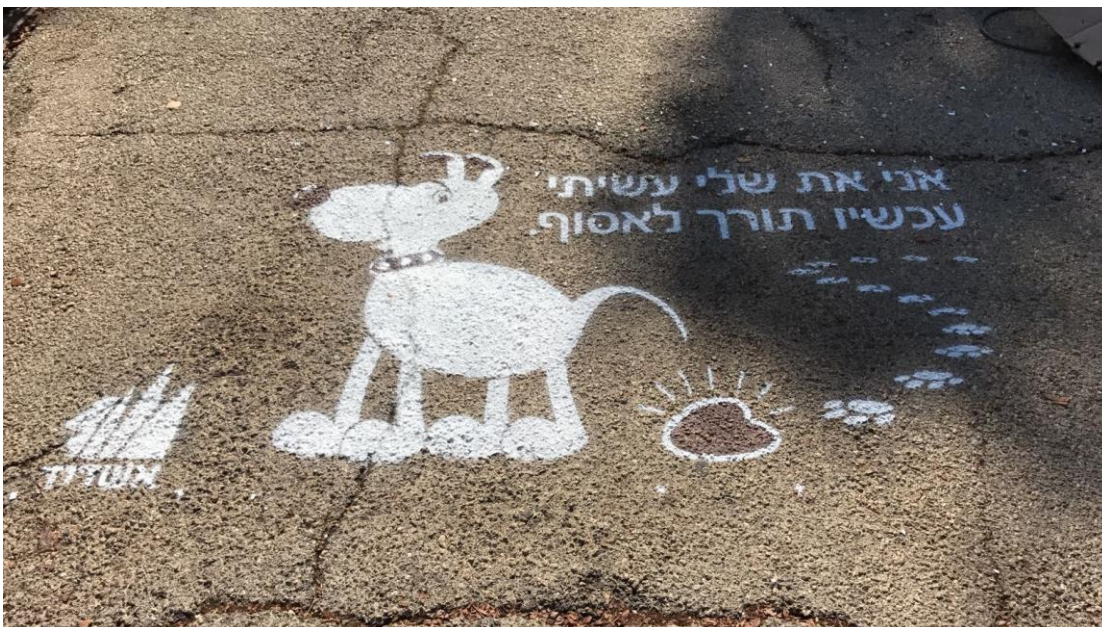 אני את שלי עשיתי
עכשיו תורך לאסוף.
אשדוד